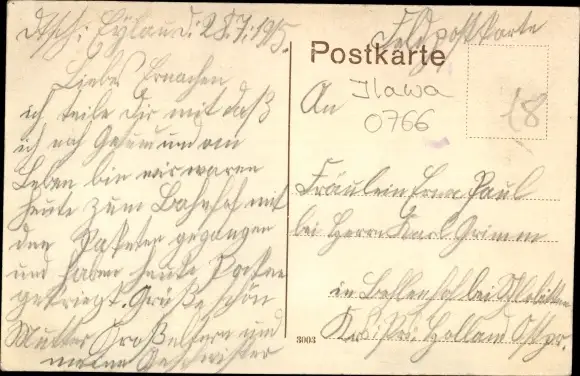 Dtsch: Eylau d. 28.7.1915.
Liebes Ernachen
ich teile Dir mit daß
ich noch Gesund und am
Leben bin wir waren
heute zum Bahnhof mit
den Paketen gegangen
und haben heute
gekriegt. Grüße schön
Mutter Großeltern und
meine Geschwister
Feldpostkarte
Postkarte
An
Ilawa
0766
18
Fräulein Erna Paul
bei Herrn Karl Grimm
in bei
Krs: Pr: Holland Ostpr.
3003